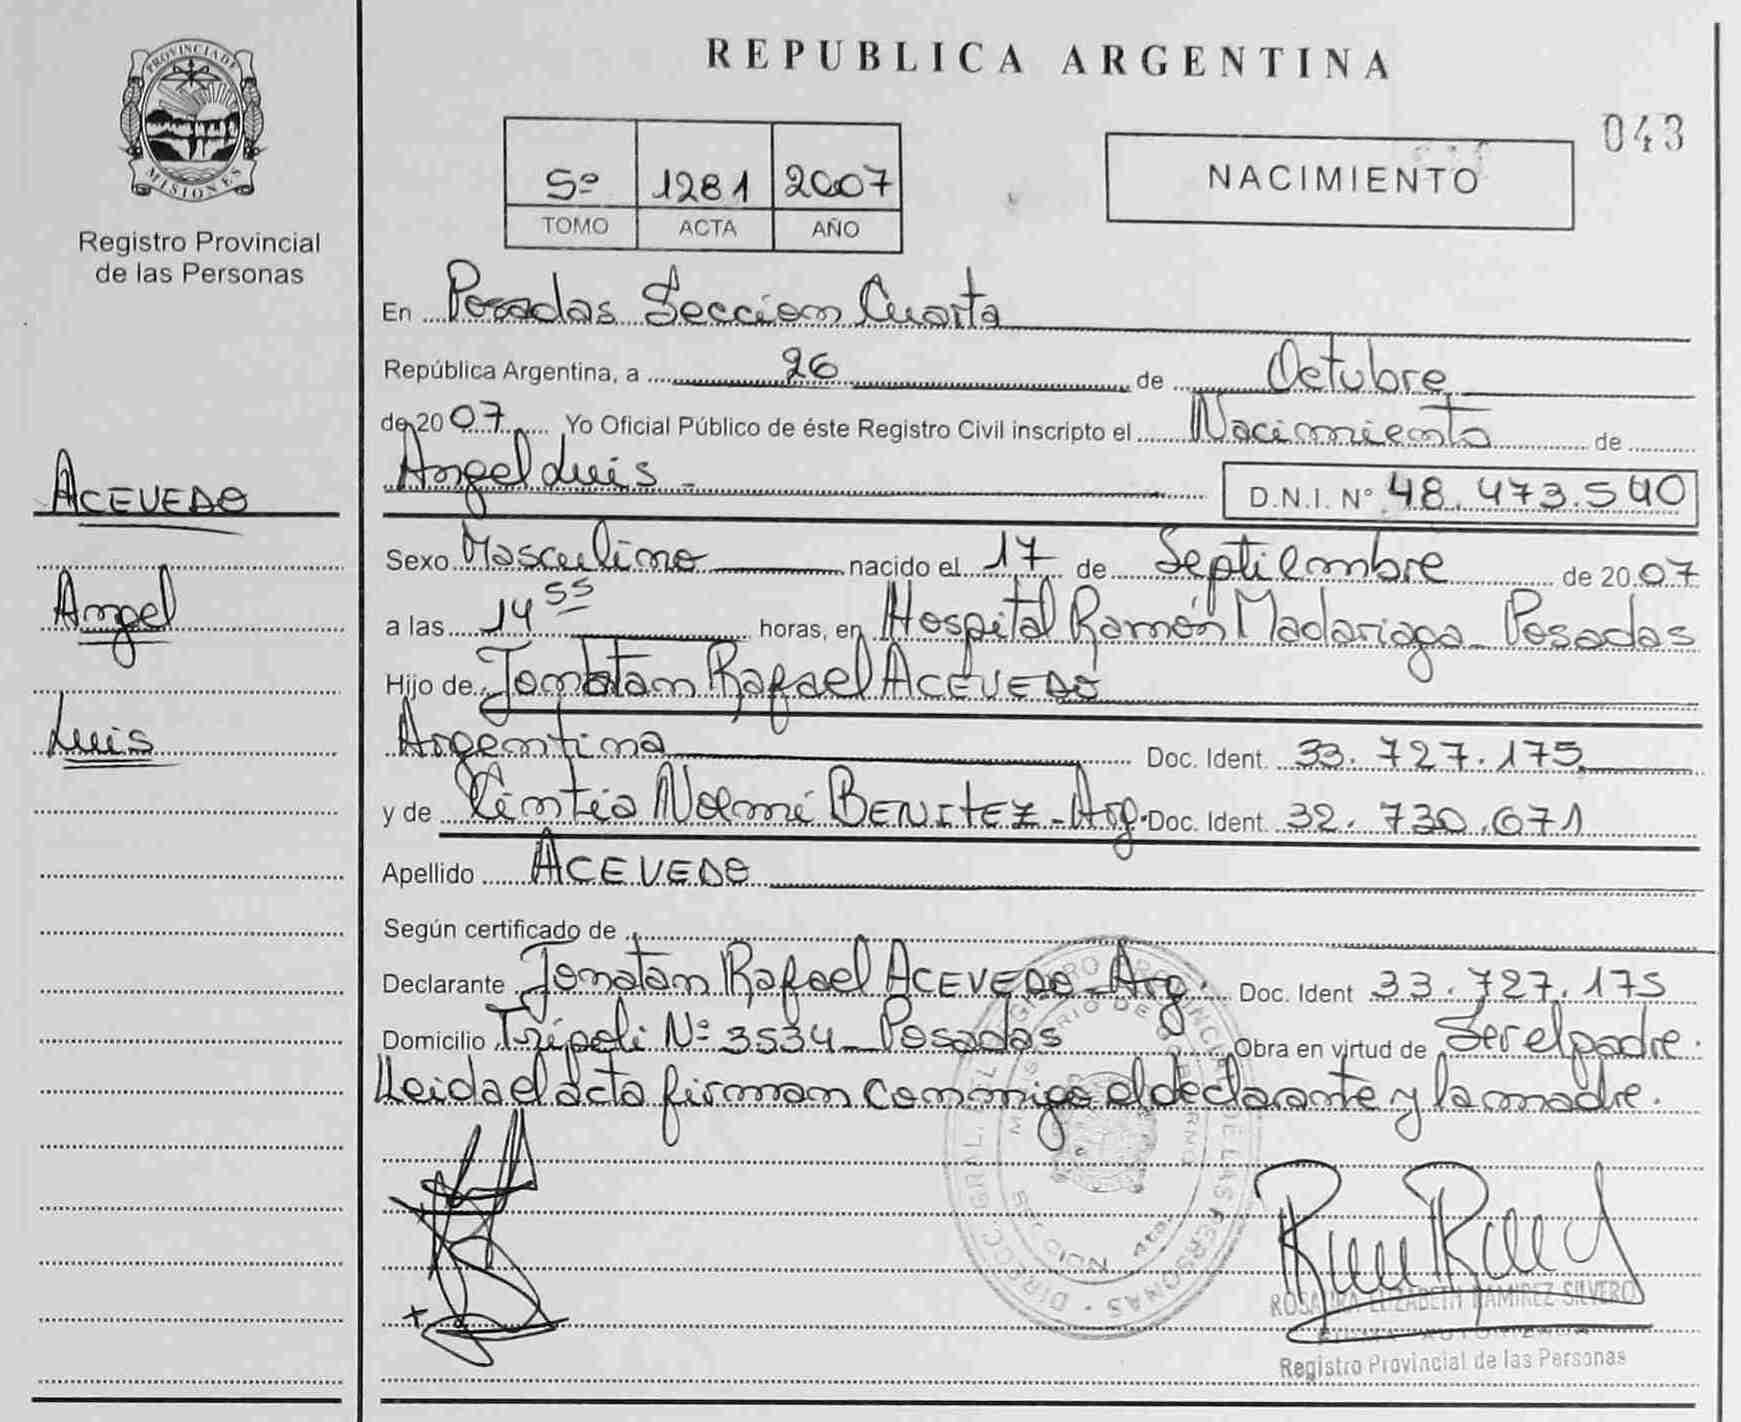 PROVINCIA DE
MISIONES
Registro Provincial
de las Personas
ACEVEDO
Angel
Luis
REPUBLICA ARGENTINA
043
5º 1281 2007
TOMO ACTA AÑO
NACIMIENTO
En Posadas Seccion Cuarta
República Argentina, a 26 de Octubre
de 2007 Yo Oficial Público de éste Registro Civil inscripto el Nacimiento de
Angel Luis - D.N.I. Nº 48.473.540
Sexo Masculino nacido el 17 de Septiembre de 2007
a las 14 55 horas, en Hospital Ramón Madariaga - Posadas
Hijo de Jonatan Rafael ACEVEDO
Argentina Doc. Ident. 33.727.175
y de Cintia Noemí BENITEZ - Arg. Doc. Ident. 32.730.671
Apellido ACEVEDO
Según certificado de
Declarante Jonatan Rafael ACEVEDO - Arg. Doc. Ident 33.727.175
Domicilio Trípoli Nº 3534 - Posadas Obra en virtud de Ser el padre.
Leida el acta firman conmigo el declarante y la madre.
DIRECC. GRAL. DE LAS PERSONAS
ROSAURA ELIZABETH RAMIREZ SILVERO
Registro Provincial de las Personas